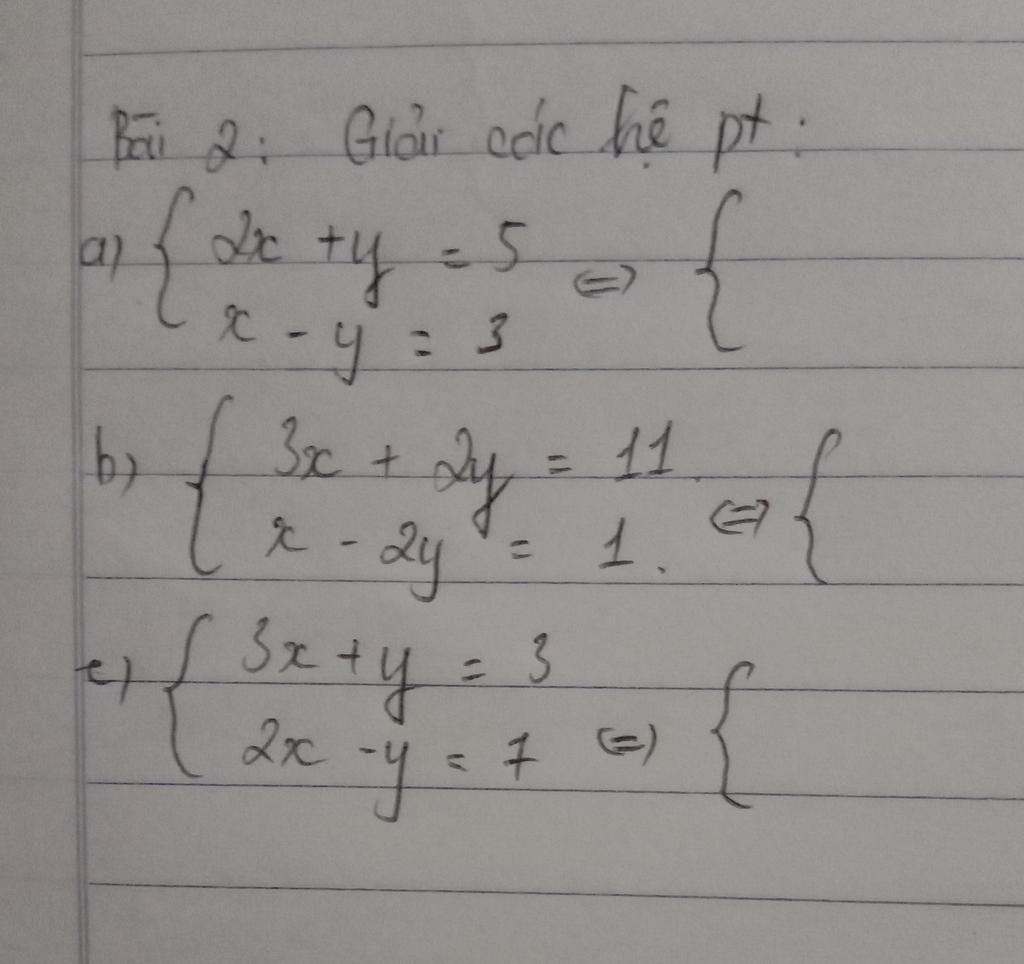 Bài 2: Giải các hệ pt:
a) { 2x + y = 5
x - y = 3 <=> {
b) { 3x + 2y = 11
x - 2y = 1. <=> {
c) { 3x + y = 3
2x - y = 7 <=> {